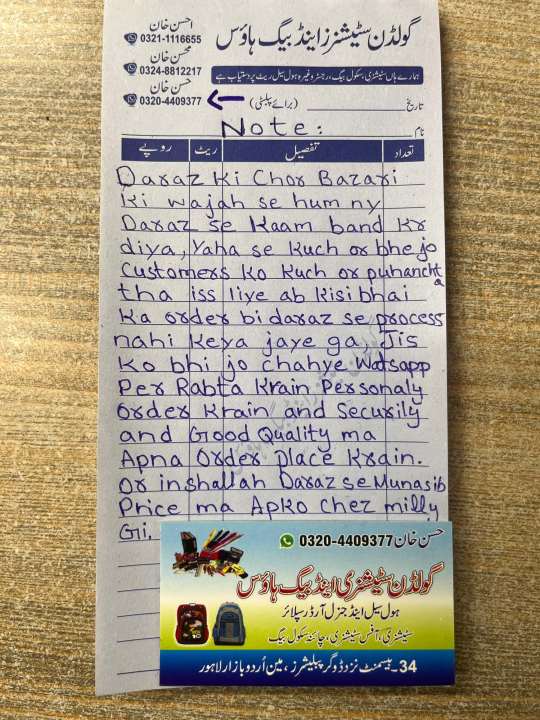 احسن خان
0321-1116655
محسن خان
0324-8812217
حسن خان
0320-4409377
گولڈن سٹیشنرز اینڈ بیگ ہاؤس
ہمارے ہاں سٹیشنری، سکول بیگ، رجسٹر وغیرہ ہول سیل ریٹ پر دستیاب ہے
تاریخ (برائے پبلسٹی)
نام
Note:
تعداد تفصیل ریٹ روپے
Daraz Ki Chor Bazari
Ki wajah se hum ny
Daraz se Kaam band Kr
diya, Yaha se Kuch or bhejo
Customers Ko Kuch or puhancht
a
tha iss liye ab Kisi bhai
Ka order bi daraz se process
nahi Keya jaye ga, Jis
Ko bhi jo chahye Watsapp
Per Rabta Krain Personaly
Order Krain and Securily
and Good Quality ma
Apna Order place Krain.
Or inshallah Daraz se Munasib
Price ma Apko Chez milly
Gi.
حسن خان 0320-4409377
گولڈن سٹیشنری اینڈ بیگ ہاؤس
ہول سیل اینڈ جنرل آرڈر سپلائر
سٹیشنری، آفس سٹیشنری، چائنہ سکول بیگ
34۔ بیسمنٹ نزد ڈوگر پبلیشرز، مین اُردو بازار لاہور